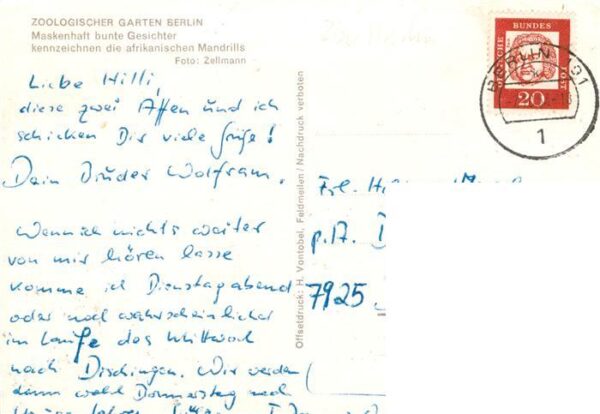 ZOOLOGISCHER GARTEN BERLIN
Maskenhaft bunte Gesichter
kennzeichnen die afrikanischen Mandrills
Foto: Zellmann
Liebe Hilli,
diese zwei Affen und ich
schicken Dir viele Grüße!
Dein Bruder Wolfram.
Wenn ich nichts weiter
von mir hören lasse
komme ich Dienstagabend
oder noch wahrscheinlicher
im Laufe des Mittwoch
nach Dischingen. Wir werden
dann wohl Donnerstag nach
Offsetdruck: H. Vontobel, Feldmeilen/Nachdruck verboten
DEUTSCHE BUNDESPOST
20
BERLIN 131
1
Frl.
p. A.
7925